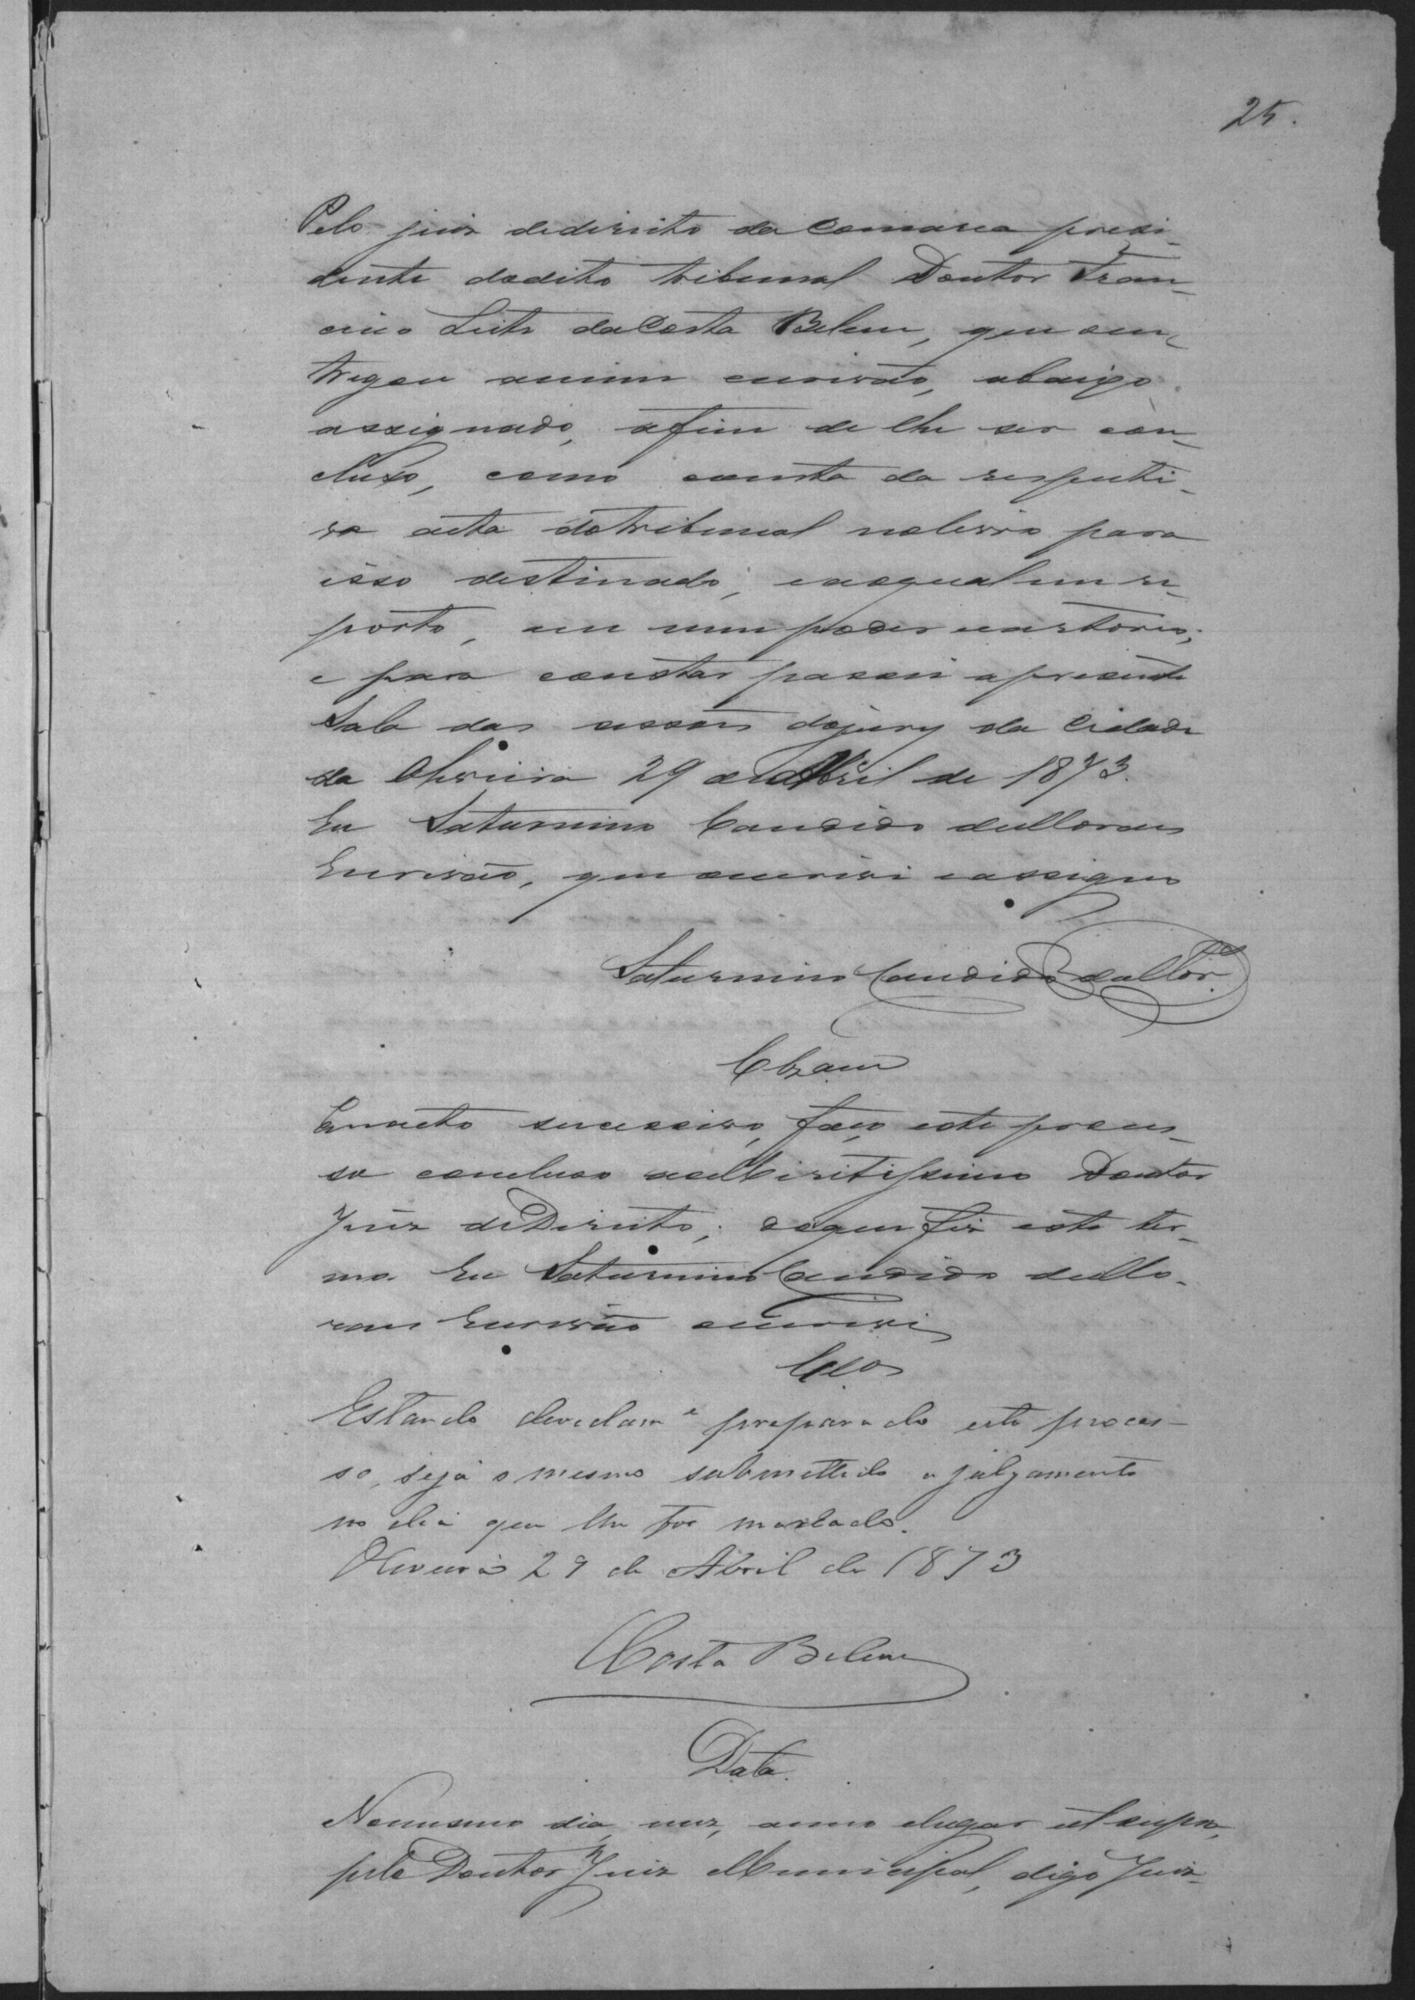 25.
Pelo juiz dedireito da Comarca presi-
dente dodito tribunal Doutor Fran-
cisco Luis daCosta Belem, que en-
tregou amim escrivão, abaixo
assignado, afim de lhe ser con-
cluso, como consta da respecti-
va acta dotribunal nolivro para
isso destinado, eaoqual me re-
porto, em meu poder ecartorio;
e para constar passei apresente
Sala das sessões dojury da Cidade
da Oliveira 29 de Abril de 1873.
Eu Saturnino Candido deMoraes
Escrivão, que escrevi eassigno
Saturnino Candido deMor.es
Clzam
Emacto sucessivo, faço este proces-
so concluso aoMeritissimo Doutor
Juiz deDireito; doque fiz este ter-
mo. Eu Saturnino Candido deMo-
raes Escrivão escrevi
Clos
Estando devidam.e preparado este proces-
so, seja o mesmo submettido a julgamento
no dia que lhe for marcado.
Oliveira 29 de Abril de 1873
Costa Belem
Data.
Nomesmo dia, mez, anno elugar ut supra,
pelo Doutor Juiz Municipal, digo Juiz